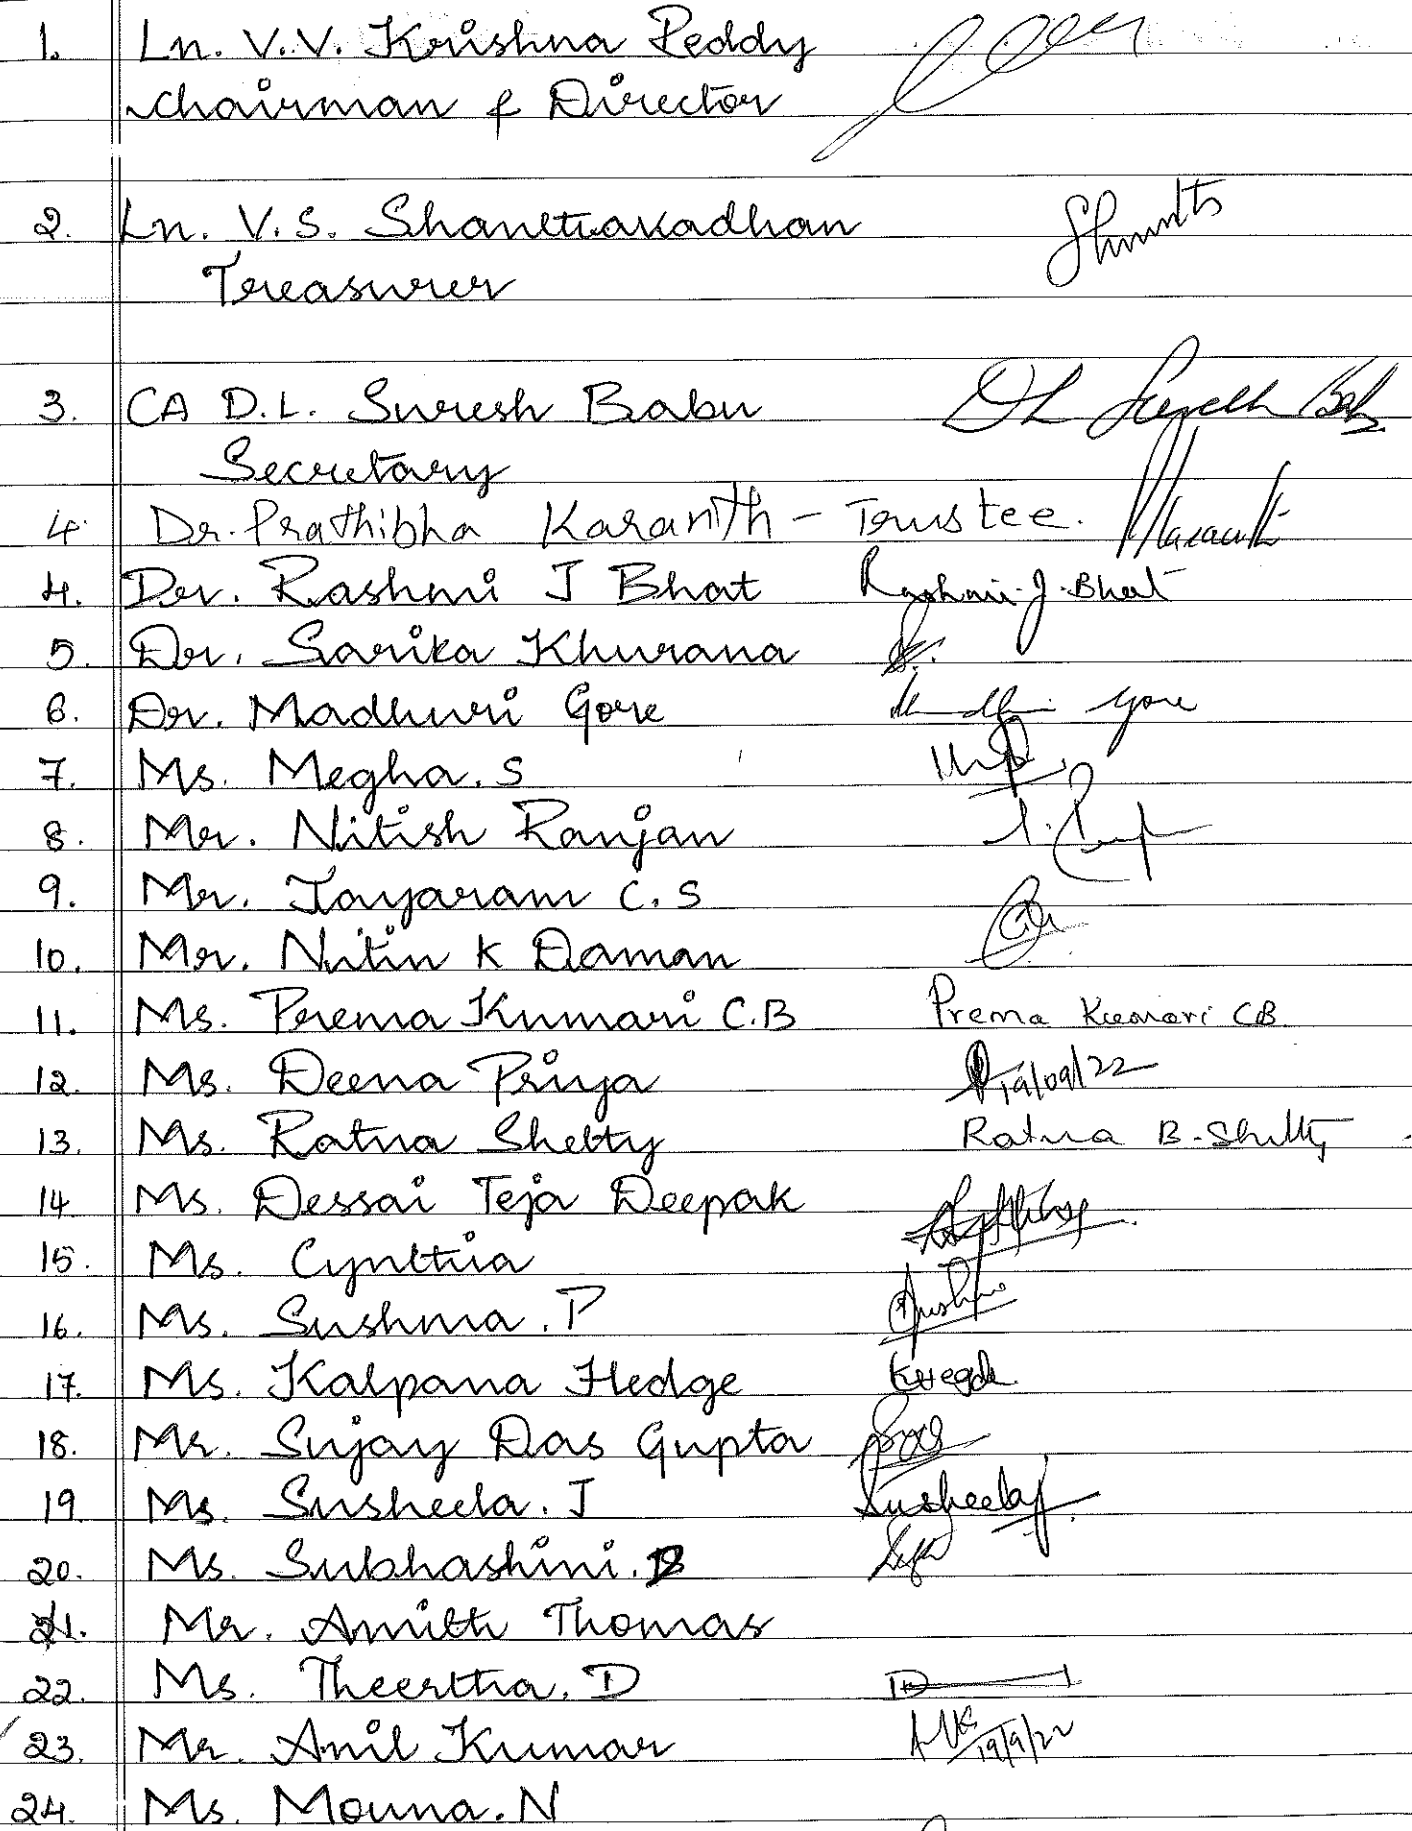 1. Ln. V.V. Krishna Reddy
Chairman & Director
2. Ln. V.S. Shanthakadhan Shanth
Treasurer
3. CA D.L. Suresh Babu DL Suresh Bab
Secretary
4. Dr. Prathibha Karanth - Trustee. Karanth
4. Dr. Rashmi J Bhat Rashmi. J. Bhat
5. Dr. Sarika Khurana
6. Dr. Madhuri Gore Madhuri Gore
7. Ms. Megha. S
8. Mr. Nitish Ranjan
9. Mr. Jayaram C. S
10. Mr. Nitin K Daman
11. Ms. Prema Kumari C.B Prema Kumari CB
12. Ms. Deena Priya 19/09/22
13. Ms. Ratna Shetty Ratna B. Shetty
14. Ms. Dessai Teja Deepak
15. Ms. Cynthia
16. Ms. Sushma. P Sushma
17. Ms. Kalpana Hedge KHegde
18. Mr. Sujay Das Gupta
19. Ms. Susheela. J SusheelaJ
20. Ms. Subhashini. B
21. Mr. Amith Thomas
22. Ms. Theertha. D
23. Mr. Anil Kumar 19/9/22
24. Ms. Mouna. N